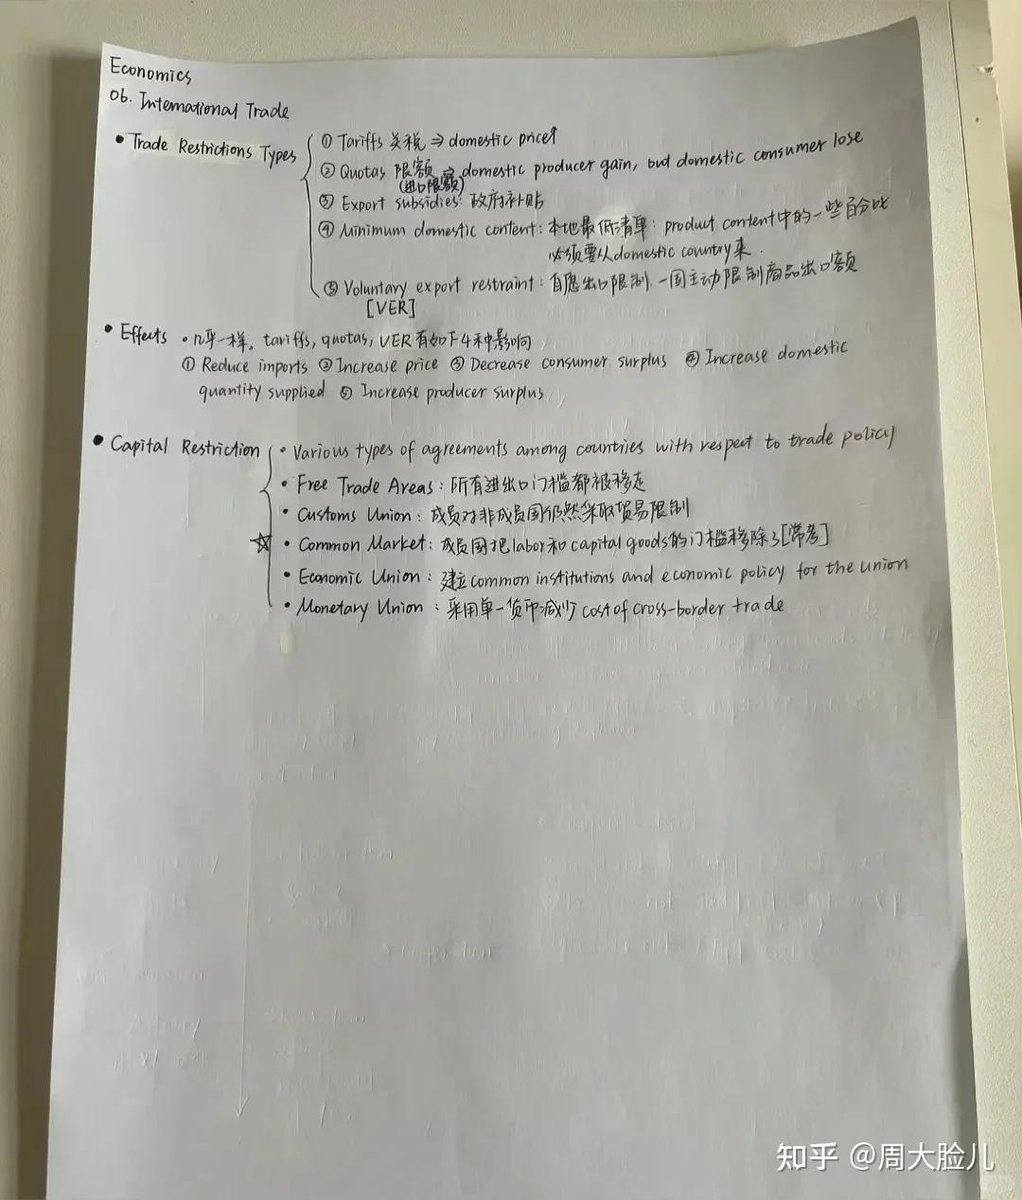 Economics
06. International Trade
• Trade Restrictions Types
① Tariffs 关税 ⇒ domestic price↑
② Quotas 限额 ⇒ domestic producer gain, but domestic consumer lose
(进口限额)
③ Export subsidies: 政府补贴
④ Minimum domestic content: 本地最低清单: product content中的一些百分比
必须要从domestic country来.
⑤ Voluntary export restraint: 自愿出口限制. 一国主动限制商品出口额
[VER]
• Effects • 几乎一样。tariffs, quotas, VER 有如下4种影响
① Reduce imports ② Increase price ③ Decrease consumer surplus ④ Increase domestic
quantity supplied ⑤ Increase producer surplus
• Capital Restriction • Various types of agreements among countries with respect to trade policy
• Free Trade Areas: 所有进出口门槛都被移走
• Customs Union: 成员对非成员国仍然采取贸易限制
☆ • Common Market: 成员国把labor和capital goods的门槛移除了[常考]
• Economic Union: 建立common institutions and economic policy for the union
• Monetary Union: 采用单一货币减少cost of cross-border trade
知乎 @周大脸儿